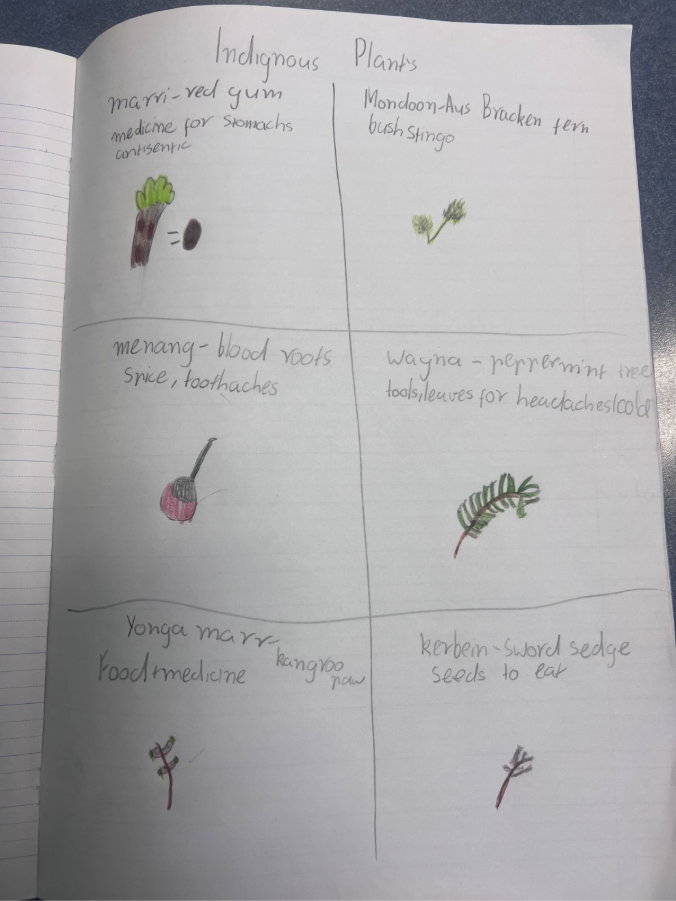 Indignous Plants
marri-red gum
medicine for stomachs
antisentic
Mondoon-Aus Bracken fern
bush Stingo
menang - blood roots
Spice, toothaches
Wayna - peppermint tree
tools, leaves for headaches/cold
Yonga marr-
kangroo
paw
Food + medicine
kerbein-sword sedge
seeds to eat